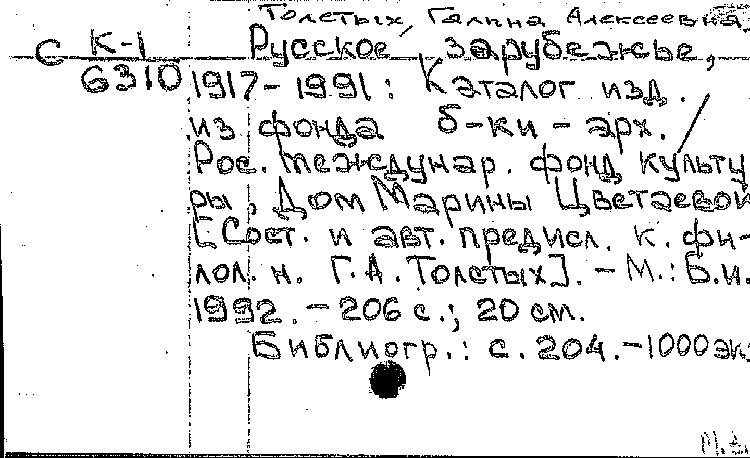 Толстых, Галина Алексеевна
С К-1 Русское зарубежье,
6310 1917-1991: Каталог изд.
из фонда б-ки-арх. /
Рос. междунар. фонд культу
ры, Дом Марины Цветаевой
[Сост. и авт. предисл. к. фи-
лол. н. Г.А. Толстых]. - М.: Б.и.
1992. - 206 с.; 20 см.
Библиогр.: с. 204. - 1000 экз